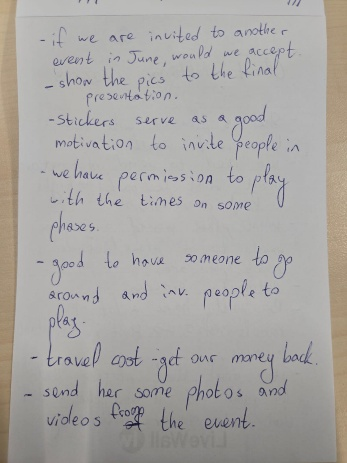 - if we are invited to another
event in June, would we accept.
- show the pics to the final
presentation.
- Stickers serve as a good
motivation to invite people in
- we have permission to play
with the times on some
phases.
- good to have someone to go
around and inv. people to
play.
- travel cost - get our money back.
- send her some photos and
videos from the event.
LiveWall